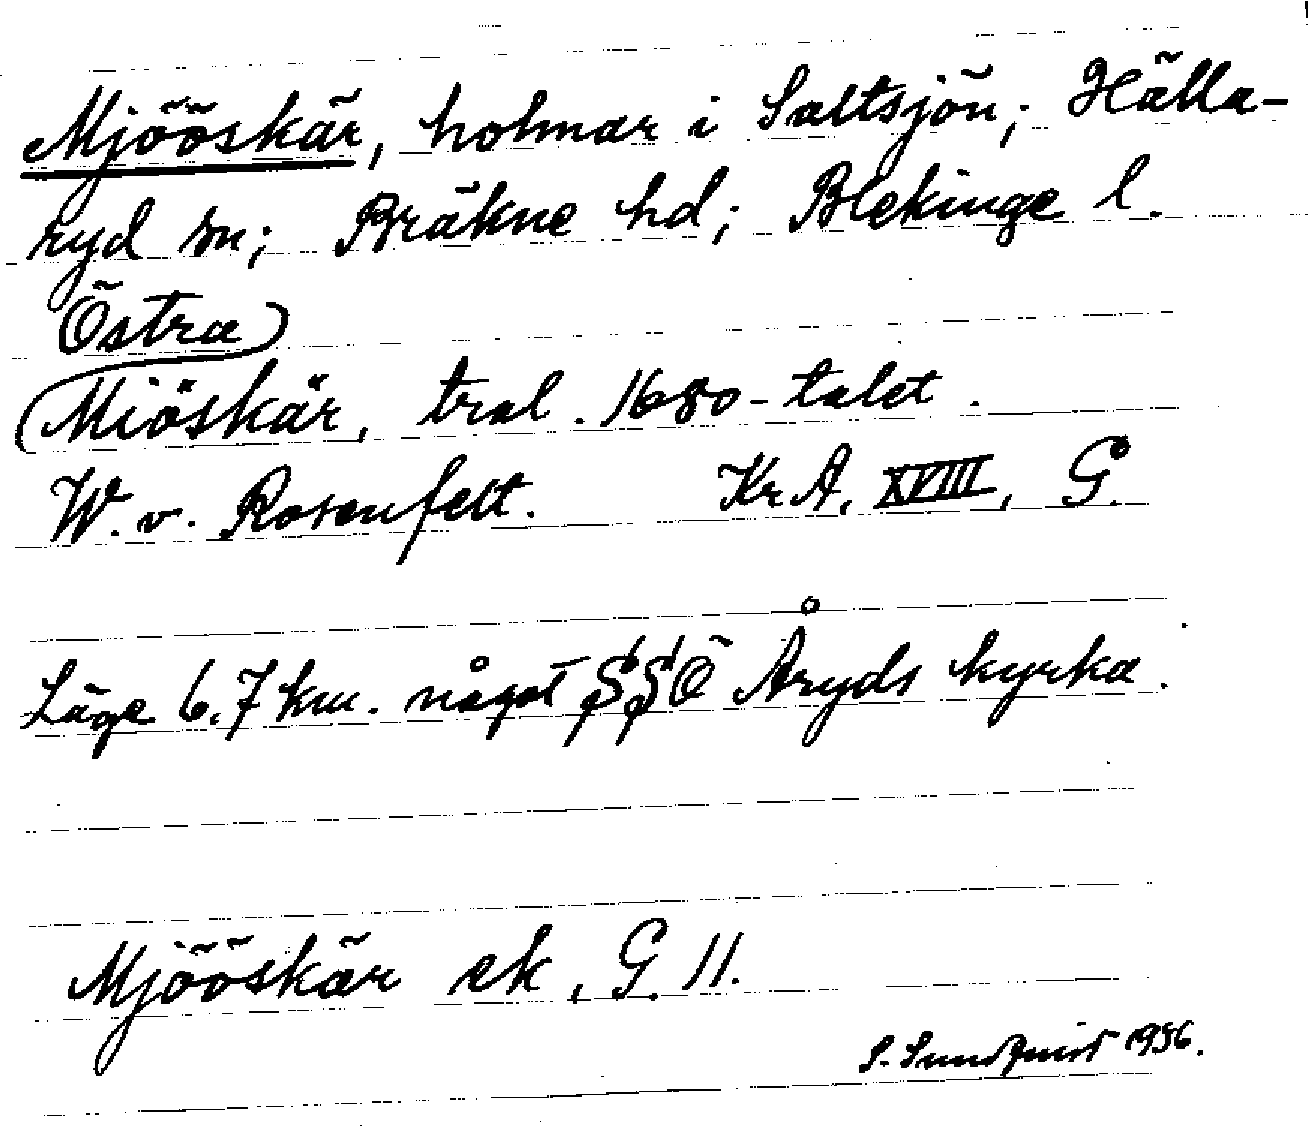 Mjööskär, holmar i Saltsjön; Hälla-
ryd sn; Bräkne hd; Blekinge l.
Östra
Miöskär, tral. 1680-talet.
W. v. Rosenfelt. KrA, XVIII, G.
Läge 6.7 km. något SSÖ Åryds kyrka.
Mjööskär ek, G 11.
S. Sundquist 1936.